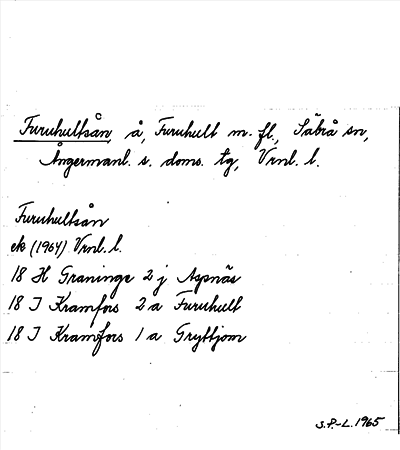 Furuhultsån å, Furuhult m. fl., Säbrå sn,
Ångermanl. s. doms. tg, Vrnl. l.
Furuhultsån
ek (1964) Vrnl. l.
18 H Graninge 2 j Aspnäs
18 I Kramfors 2 a Furuhult
18 I Kramfors 1 a Gryttjom
S.P.-L. 1965